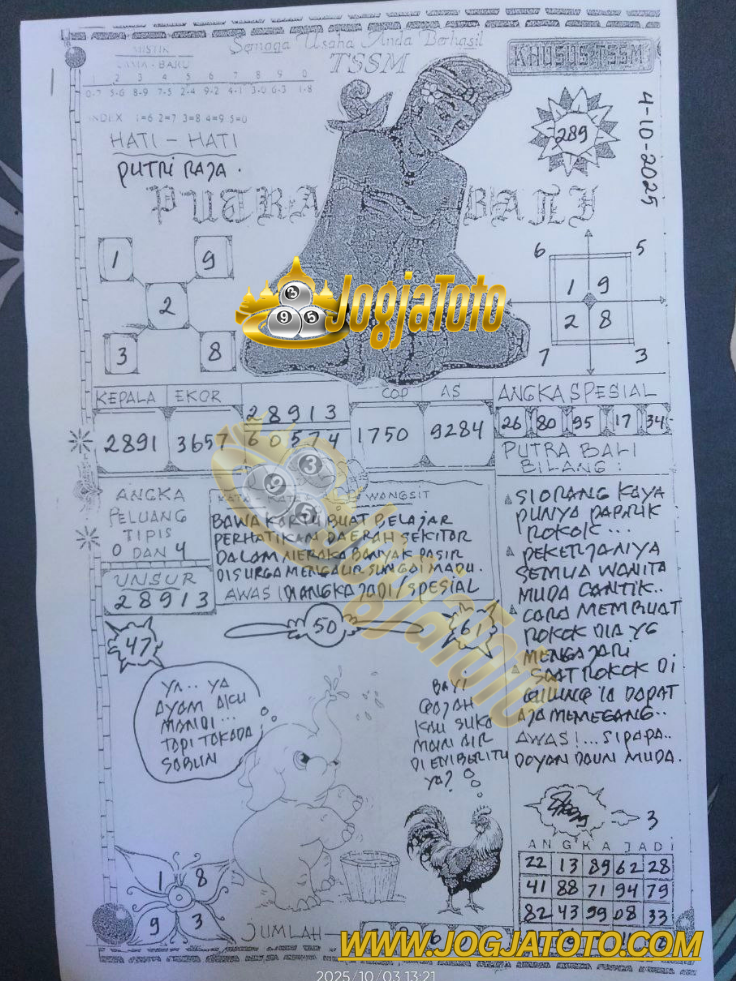 Semoga Usaha Anda Berhasil
TSSM
KHUSUS TSSM
MISTIK
JAWA - BARU
1 2 3 4 5 6 7 8 9 0
INDEX 1=6 2=7 3=8 4=9 5=0
HATI - HATI
PUTRI RAJA.
289
4-10-2025
PUTRA BALI
1 9
2
3 8
6 5
1 9
2 8
7 3
JogjaToto
3 9 5
KEPALA EKOR
2891 3657
28913
60574
COP AS
1750 9284
ANGKA SPESIAL
26 80 95 17 34
PUTRA BALI
BILANG :
ANGKA
PELUANG
TIPIS
0 DAN 4
UNSUR
28913
WANGSIT
BAWA KARTU BUAT BELAJAR
PERHATIKAN DAERAH SEKITAR
DALAM NERAKA BANYAK PASIR
DISURGA MENGALIR SUNGAI MADU.
AWAS (DI ANGKA JADI / SPESIAL
SIORANG KAYA
PUNYA PABRIK
ROKOK ...
PEKERJANYA
SEMUA WANITA
MUDA CANTIK..
CARA MEMBUAT
ROKOK DIA YG
MENGAJARI
SAAT ROKOK DI
GULUNG IA DAPAT
AJA MEMEGANG..
AWAS!...SIPAPA..
DOYAN DAUN MUDA.
47
50
61
YA.. YA
AYAM AKU
MANDI...
TAPI TAKADA
SABUN
BAYI
GAJAH
KAU SUKA
MAIN AIR
DIEMBERITU
YA?
3
1 8
9 3
ANGKA JADI
22 13 89 62 28
41 88 71 94 79
82 43 99 08 33
JUMLAH
WWW.JOGJATOTO.COM
2025/10/03 13:21